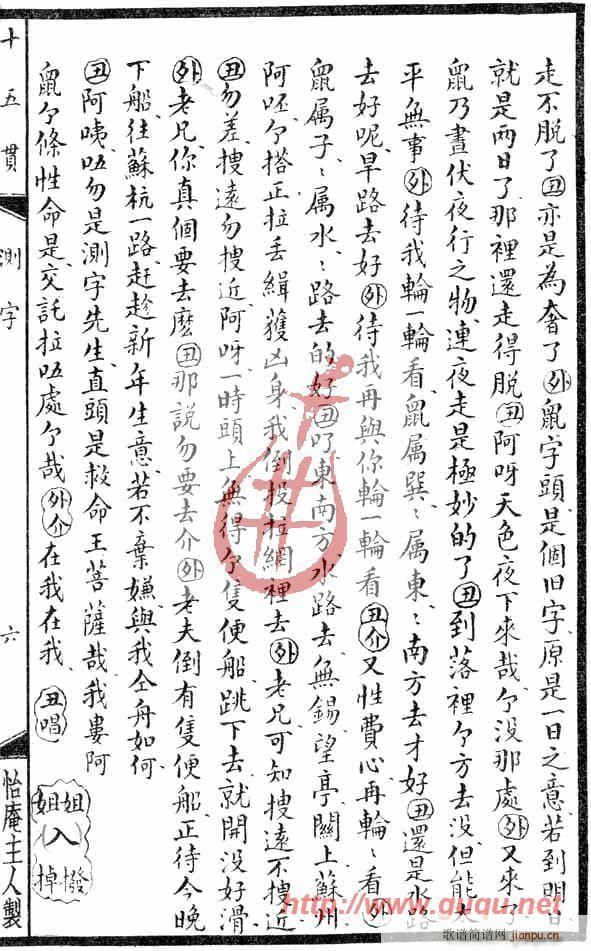 走不脫了丑亦是為奢了外鼠字頭是個旧字原是一日之意若到明日
就是兩日了那裡還走得脫丑阿呀天色夜下來哉介没那處外又來了
鼠乃晝伏夜行之物連夜走是極妙的了丑到落裡介方去没但能太
平無事外待我輪一輪看鼠属巽〻属東〻南方去才好丑還是水路
去好呢旱路去好外待我再與你輪一輪看丑介又性費心再輪〻看外
鼠属子〻属水〻路去的好丑東南方水路去無錫望亭關上蘇州
阿呸介搭正拉丢緝獲凶身我倒投拉網裡去外老兄可知搜遠不搜近
丑勿差搜遠勿搜近阿呀一時頭上無得介隻便船跳下去就開没好滑
外老兄你真個要去麽丑那說勿要去介外老夫倒有隻便船正待今晚
下船往蘇杭一路赶趁新年生意若不棄嫌與我仝舟如何
丑阿咦唔勿是測字先生直頭是救命王菩薩哉我婁阿
鼠介條性命是交託拉唔處介哉外介在我在我丑唱
姐姐入撥掉
十五貫
測字
六
怡庵主人製
http://www.ququ.net
歌谱简谱网
jianpu.cn